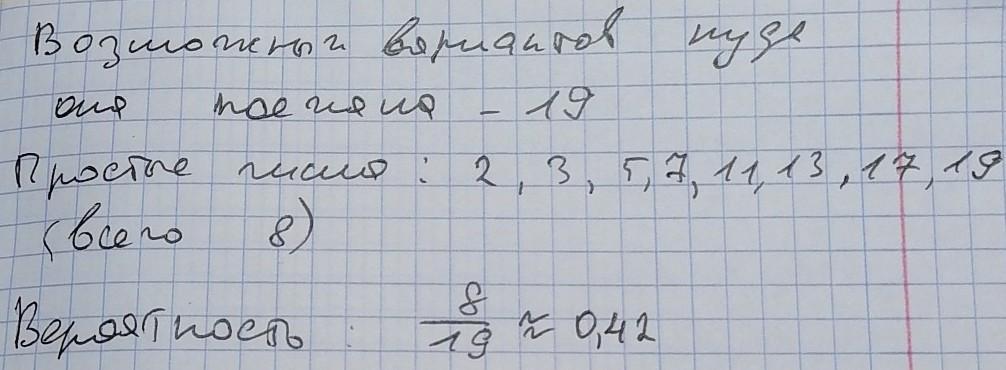 Возможных вариантов куда
она поехала - 19
Простые числа: 2, 3, 5, 7, 11, 13, 17, 19
(всего 8)
Вероятность: 8/19 ≈ 0,42